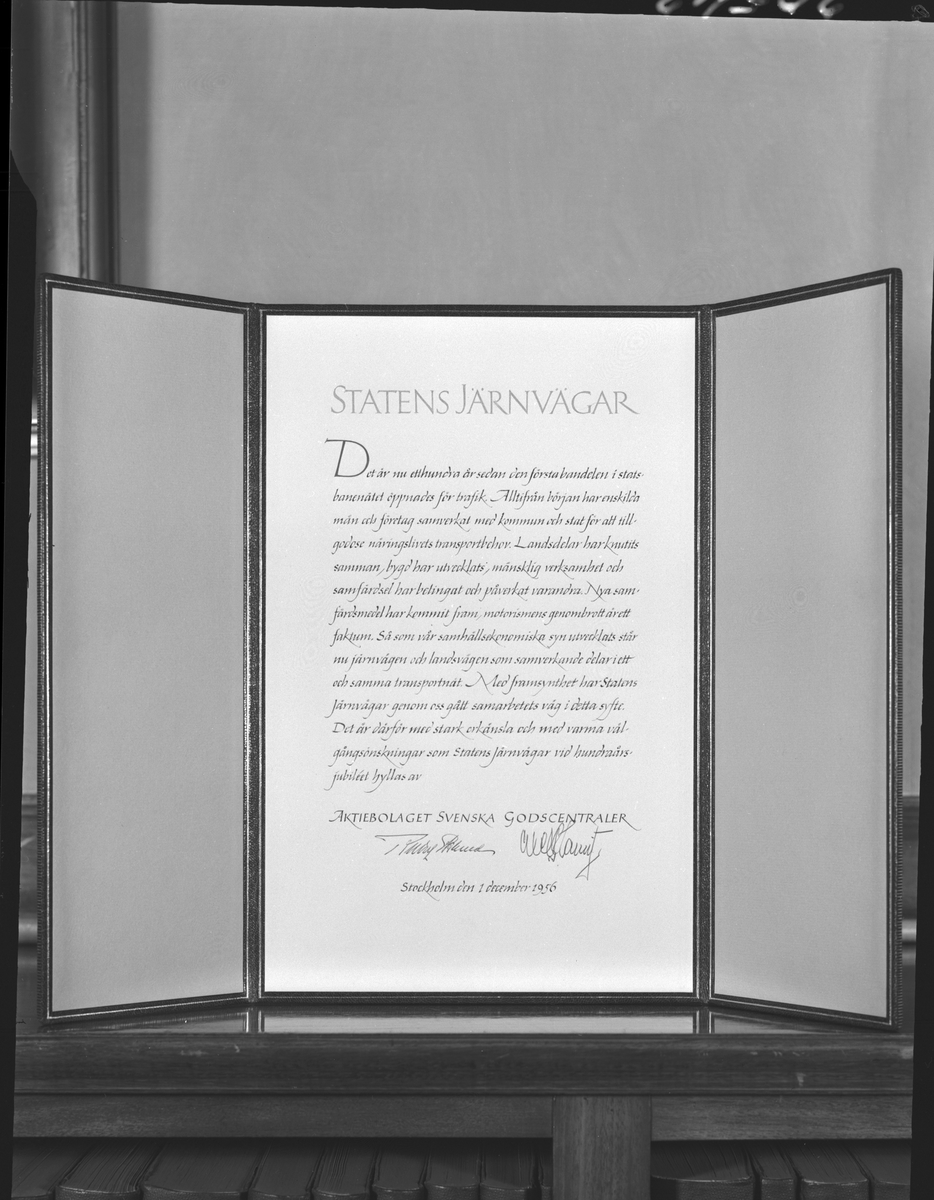 STATENS JÄRNVÄGAR
Det är nu etthundra år sedan den första bandelen i stats-
banenätet öppnades för trafik. Alltifrån början har enskilda
män och företag samverkat med kommun och stat för att till-
godose näringslivets transportbehov. Landsdelar har knutits
samman, bygd har utvecklats, mänsklig verksamhet och
samfärdsel har betingat och påverkat varandra. Nya sam-
färdsmedel har kommit fram, motorismens genombrott är ett
faktum. Så som vår samhällsekonomiska syn utvecklats står
nu järnvägen och landsvägen som samverkande delar i ett
och samma transportnät. Med framsynthet har Statens
Järnvägar genom oss gått samarbetets väg i detta syfte.
Det är därför med stark erkänsla och med varma väl-
gångsönskningar som Statens Järnvägar vid hundraårs-
jubiléet hyllas av
AKTIEBOLAGET SVENSKA GODSCENTRALER
Stockholm den 1 december 1956